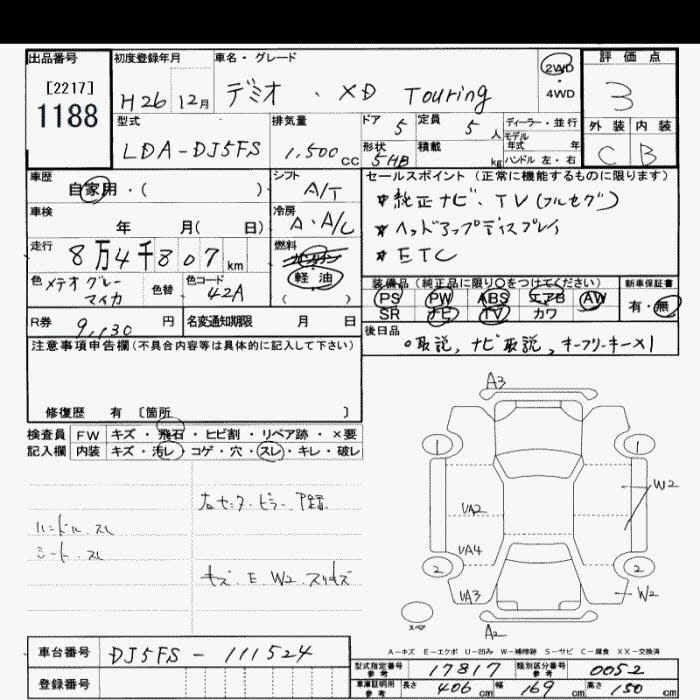 出品番号
[2217]
1188
初度登録年月
H26 12月
車名・グレード
デミオ ・ XD Touring
2WD
・
4WD
評価点
3
外装 内装
C B
型式
LDA-DJ5FS
排気量
1,500cc
ドア 5
定員 5人
形状 5HB
積載 kg
ディーラー・並行
モデル年式 年
ハンドル 左・右
車歴
自家用・( )
シフト
A/T
車検
年 月( 日)
冷房
A・A/C
走行
8万4千807km
燃料
軽油
( )
色 メテオグレーマイカ
色替
色コード 42A
R券 9,130円
名変通知期限 月 日
セールスポイント(正常に機能するものに限ります)
純正ナビ・TV(フルセグ)
ヘッドアップディスプレイ
ETC
装備品(純正品に限り○をつけてください)
PS PW ABS エアB AW
SR ナビ TV カワ
新車保証書
有・無
後日品
取説, ナビ取説, キーフリーキー×1
注意事項申告欄(不具合内容等は具体的に記入して下さい)
修復歴 有〔箇所 〕
検査員 FW キズ・飛石・ヒビ割・リペア跡・×要
記入欄 内装 キズ・汚レ・コゲ・穴・スレ・キレ・破レ
ハンドル スレ
シート スレ
右センターピラー
キズ E W2 スリキズ
A3
1 1
VA2
W2
VA4
2 2
VA3
W2
スペア
A2
A-キズ E-エクボ U-凹み W-補修跡 S-サビ C-腐食 XX-交換済
車台番号 DJ5FS-111524
登録番号
型式指定番号 参考 17817
類別区分番号 参考 0052
車庫証明用 参考 長さ 406cm 幅 169cm 高さ 150cm